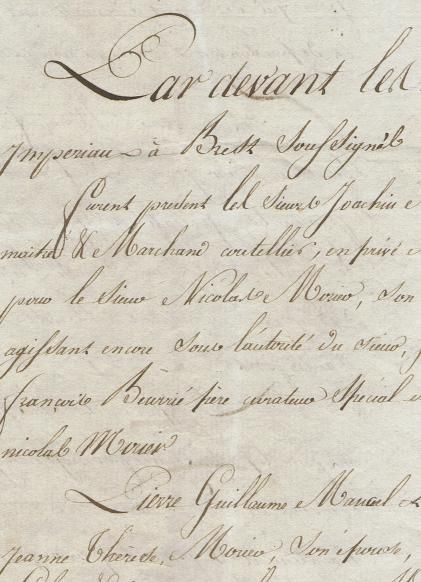 Par devant les
Imperiaux à Brest Soussignés
furent présent les Sieurs Joachim
maitre & Marchand coutellier, en privé
pour le Sieur Nicolas Morier, son
agissant encore sous l'autorité du sieur,
françois Beurrié père curateur Spécial
nicolas Morier
Pierre Guillaume Manuel
Jeanne Thérese, Morier, Son épouse,